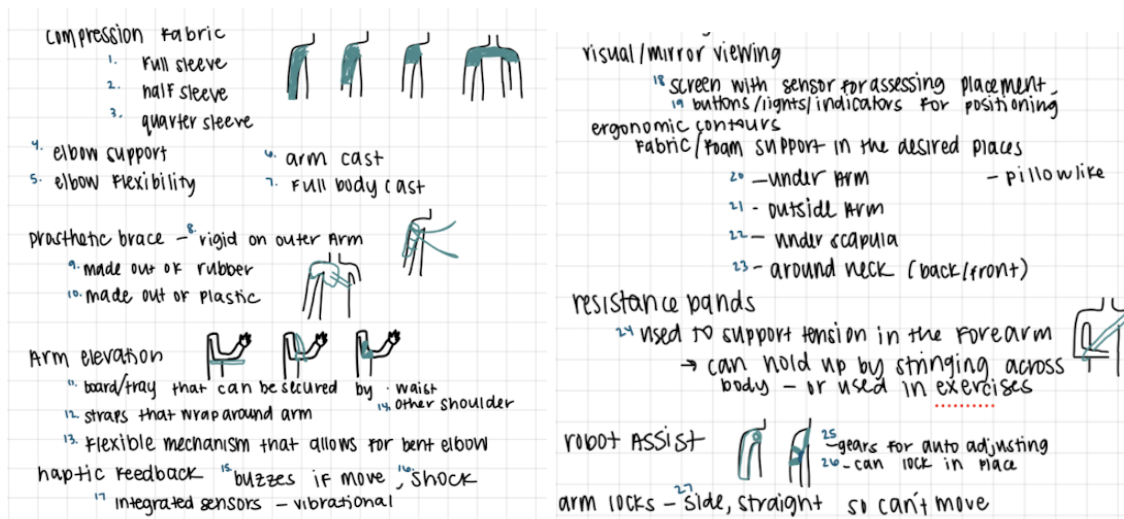 compression fabric
1. full sleeve
2. half sleeve
3. quarter sleeve
4. elbow support
5. elbow flexibility
6. arm cast
7. full body cast
prosthetic brace - 8. rigid on outer arm
9. made out of rubber
10. made out of plastic
Arm elevation
11. board/tray that can be secured by · waist
14. other shoulder
12. straps that wrap around arm
13. flexible mechanism that allows for bent elbow
haptic feedback 15. buzzes if move, 16. shock
17 integrated sensors - vibrational
visual/mirror viewing
18 screen with sensor for assessing placement
19 buttons/lights/indicators for positioning
ergonomic contours
fabric/foam support in the desired places
20 - under arm - pillowlike
21 - outside arm
22 - under scapula
23 - around neck (back/front)
resistance bands
24 used to support tension in the forearm
→ can hold up by stringing across
body - or used in exercises
robot assist
25 - gears for auto adjusting
26 - can lock in place
arm locks - 27 side, straight so can't move